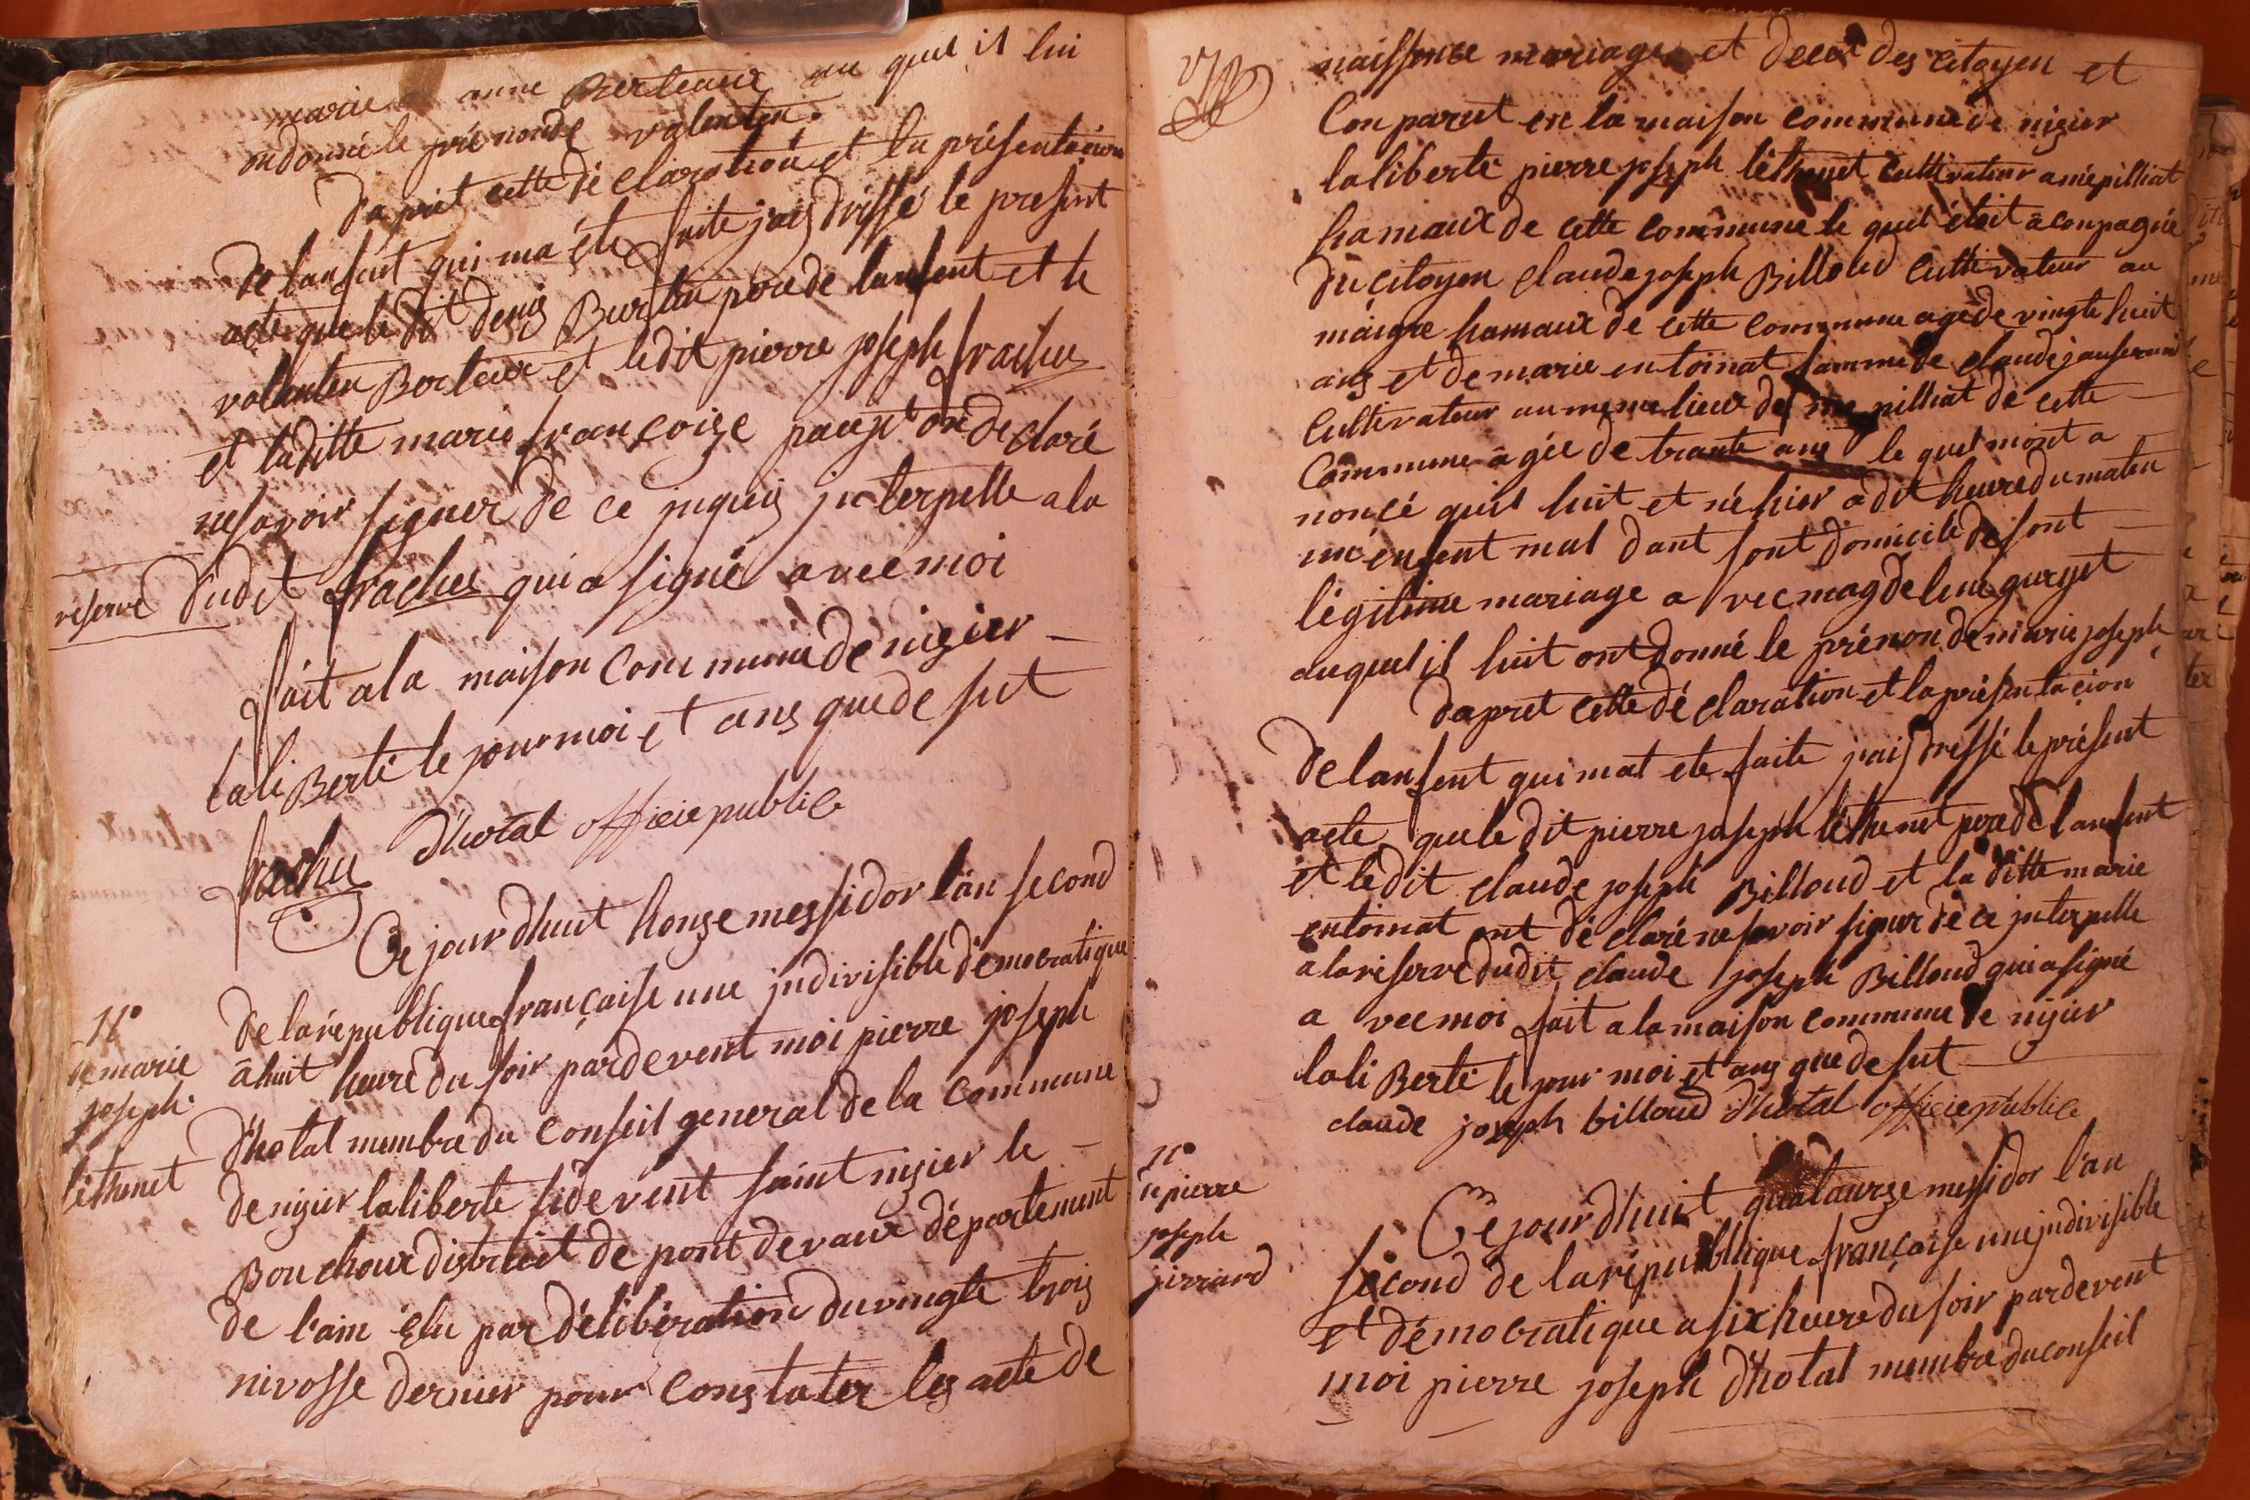 marie anne Berteaux au quel il lui
on donné le prénonde valenten.
d'apret cette dé claration et la présentation
de lanfent qui ma été faite jais drissé le present
acte que le dit denis Burtin perede lanfent et le
valenten Berteaux et ledit pierre joseph frachet
et laditte marie françoise paujet on de claré
ne savoir signer de ce juquis jnterpelle a la
reserve dudit frachet qui a signé avec moi
fait a la maison commune de nizier
la li Berté le jour moi et ans que de sut
frachet d'hotal officie public
Ce jour dhuit honze messidor l'an second
de la republique française une jndivisible démocratique
à huit heure du soir pardevent moi pierre joseph
d'hotal membre du conseil general de la commune
de nizier laliberte side vent saint nizier le
Bouchoux district de pont devaux département
de l'ain élu par délibération du vingte trois
nivosse dernier pour constater les acte de
N°
n marie
joseph
lethenet
naissence mariages et deces des citoyen et
Comparut en la maison commune de nizier
laliberte pierre joseph lethenet cultivateur a mépilliat
hamaux de cette commune le quel étoit acompagné
du citoyen claude joseph Billoud cultivateur au
maigre hamaux de cette commune agé de vingte huit
ans et de marie entoinat famme de claude janfernin
cultivateur au meme lieux de me pilliat de cette
commune agée de trante ans le quel mont a
noncé quil luit et né hier a dit heure du maten
un enfent mal dant sont domicile de sont
légitime mariage a vec magdeleine guyet
auquel il luit ont donné le prénon de marie joseph
dapret cette dé claration et la présentation
de lanfent qui mat ete faite jais dressé le présent
acte que le dit pierre joseph lethenet pere de lanfent
et le dit claude joseph Billoud et la ditte marie
entoinat ont dé claré ne savoir signer de ce jnterpelle
a la reserve du dit claude joseph Billoud qui a signé
a vec moi fait a la maison commune de nizier
la li Berté le jour moi et ans que de sut
claude joseph billoud d'hotal officie public
N°
n pierre
joseph
jirriard
Ce jour dhuit quataurze messidor l'an
second de la république française une jndivisible
et démocratique a six heure du soir pardevent
moi pierre joseph d'hotal membre du conseil